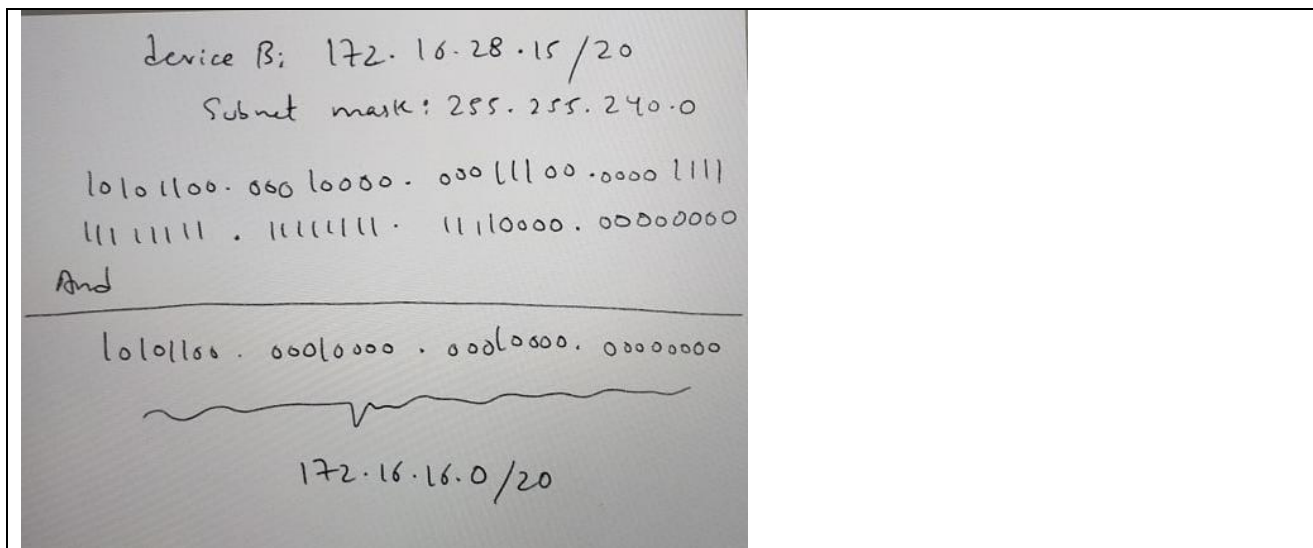 device B: 172.16.28.15/20
Subnet mask: 255.255.240.0
10101100.00010000.00011100.00001111
11111111.11111111.11110000.00000000
And
10101100.00010000.00010000.00000000
172.16.16.0/20